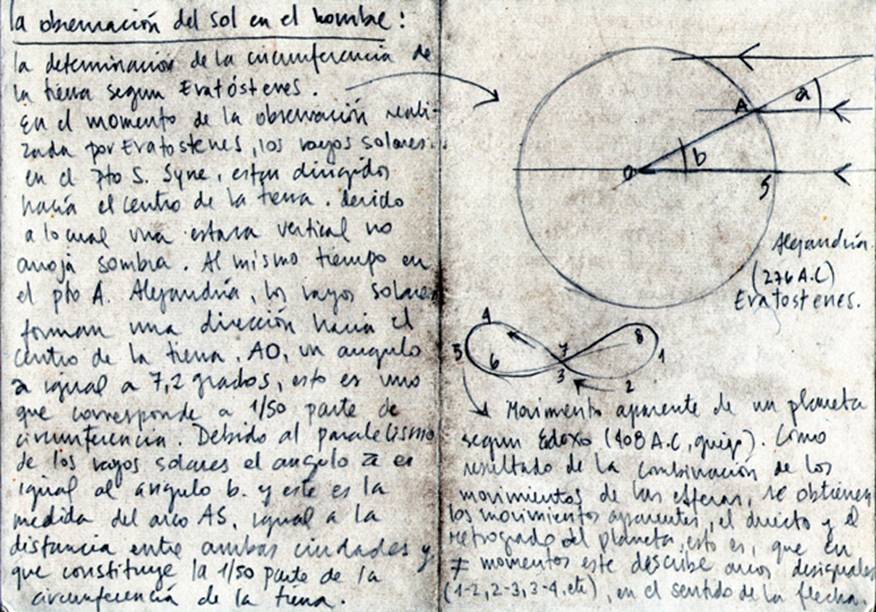 la observación del sol en el hombre:
la determinación de la circunferencia de
la tierra segun Eratóstenes.
En el momento de la observación reali-
zada por Eratostenes, los rayos solares
en el pto S. Syne, estan dirigidos
hacía el centro de la tierra. debido
a lo cual una estaca vertical no
arroja sombra. Al mismo tiempo en
el pto A. Alejandría, los rayos solares
forman una dirección hacia el
centro de la tierra, AO, un angulo
a igual a 7,2 grados, esto es uno
que corresponde a 1/50 parte de
circunferencia. Debido al paralelismo
de los rayos solares el angulo a es
igual al angulo b. y este es la
medida del arco AS, igual a la
distancia entre ambas ciudades y
que constituye la 1/50 parte de la
circunferencia de la tierra.
A
a
O
b
S
Alejandría
(276 A.C)
Eratostenes.
4
5
6
7
3
8
1
2
Movimiento aparente de un planeta
segun Edoxo (408 A.C, ). Como
resultado de la combinación de los
movimientos de las esferas, se obtienen
los movimientos aparentes, el directo y el
retrogrado del planeta, esto es, que en
≠ momentos este describe arcos desiguales
(1-2, 2-3, 3-4, etc), en el sentido de la flecha.